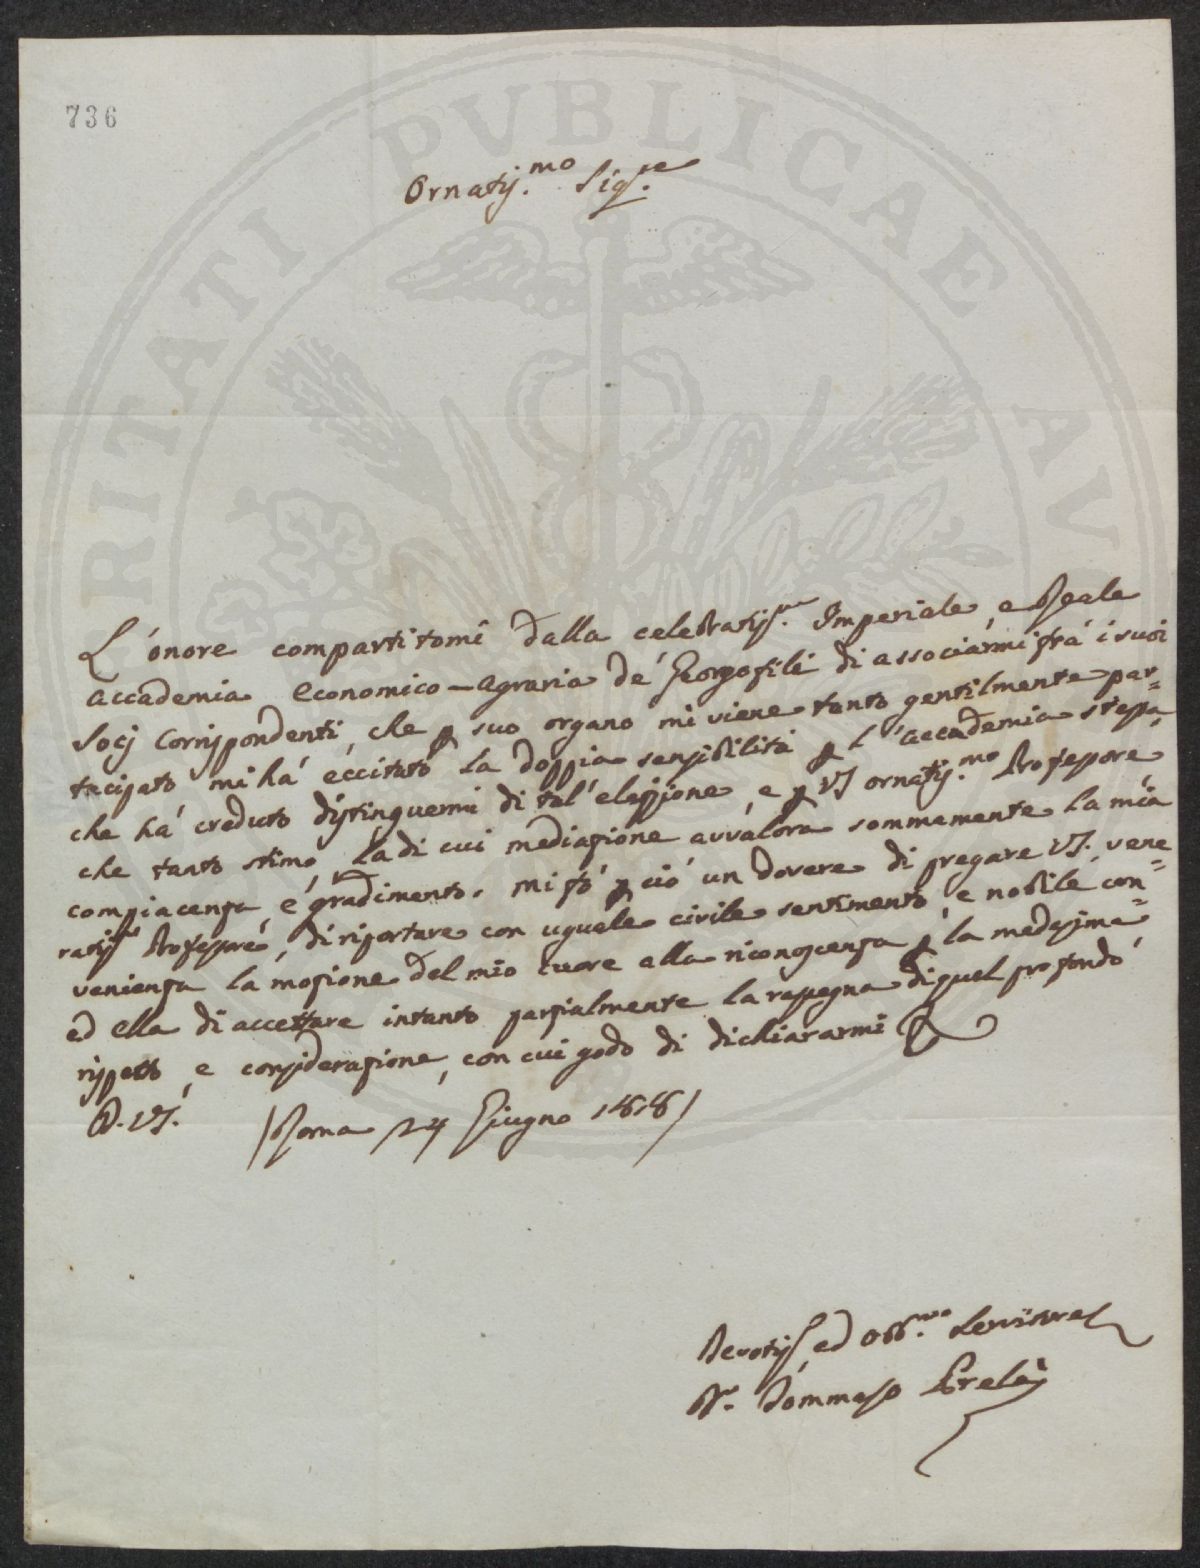 736
PROSPERITATI PUBLICAE AU
Ornatis.mo Sig.re
L'onore compartitomi dalla celebratis.ma Imperiale, e Reale
accademia economico-agraria de' Georgofili di associarmi frá i suoi
Socj Corrispondenti, che p suo organo mi viene tanto gentilmente par=
tecipato mi há eccitato la doppia sensibilitá p l'accademia stessa,
che há creduto distinguermi di tal' elezzione, e p VS ornatis.mo Professore
che tanto stimo, la di cui mediazione avvalora sommamente la mia
compiacenza, é gradimento. mi fó p ció un dovere di pregare VS. vene
ratis.mo Professore, di riportare con uguale civile sentimento, e nobile con=
venienza la mozione del mio cuore alla riconoscenza p la medesima
ed ella di accettare intanto parzialmente la rassegna di quel profondo
rispetto, e considerazione, con cui godo di dichiararmi
D. VS.
/Roma 24 Giugno 1818/
Devotis. ed obb.mo Servitore
Dr. Tommaso Prelà